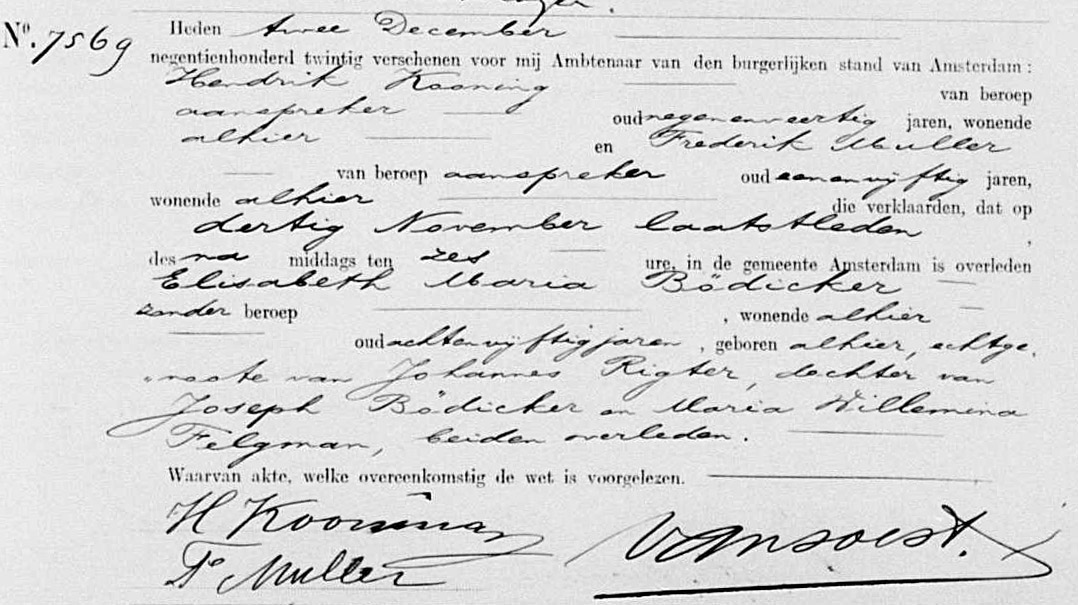 Nº. 7569
Heden twee December
negentienhonderd twintig verschenen voor mij Ambtenaar van den burgerlijken stand van Amsterdam:
Hendrik Kooning van beroep
aanspreker oud negenenveertig jaren, wonende
alhier en Frederik Muller
van beroep aanspreker oud eenenvijftig jaren,
wonende alhier die verklaarden, dat op
dertig November laatstleden,
des na middags ten zes ure, in de gemeente Amsterdam is overleden
Elisabeth Maria Bödicker
zonder beroep, wonende alhier
oud achtenvijftig jaren, geboren alhier, echtge-
noote van Johannes Rigter, dochter van
Joseph Bödicker en Maria Willemina
Filgman, beiden overleden.
Waarvan akte, welke overeenkomstig de wet is voorgelezen.
H Kooning
Fº Muller
VanSoest.